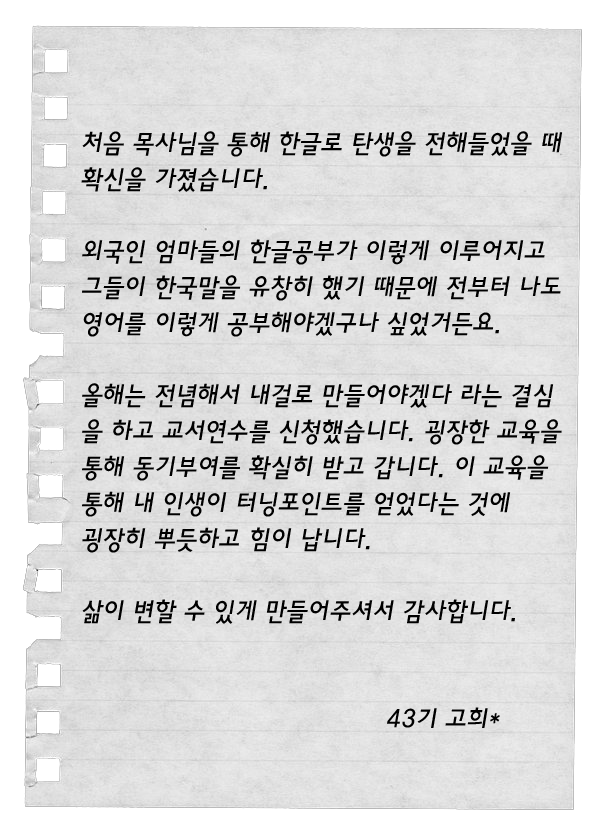 처음 목사님을 통해 한글로 탄생을 전해들었을 때
확신을 가졌습니다.
외국인 엄마들의 한글공부가 이렇게 이루어지고
그들이 한국말을 유창히 했기 때문에 전부터 나도
영어를 이렇게 공부해야겠구나 싶었거든요.
올해는 전념해서 내걸로 만들어야겠다 라는 결심
을 하고 교서연수를 신청했습니다. 굉장한 교육을
통해 동기부여를 확실히 받고 갑니다. 이 교육을
통해 내 인생이 터닝포인트를 얻었다는 것에
굉장히 뿌듯하고 힘이 납니다.
삶이 변할 수 있게 만들어주셔서 감사합니다.
43기 고희*